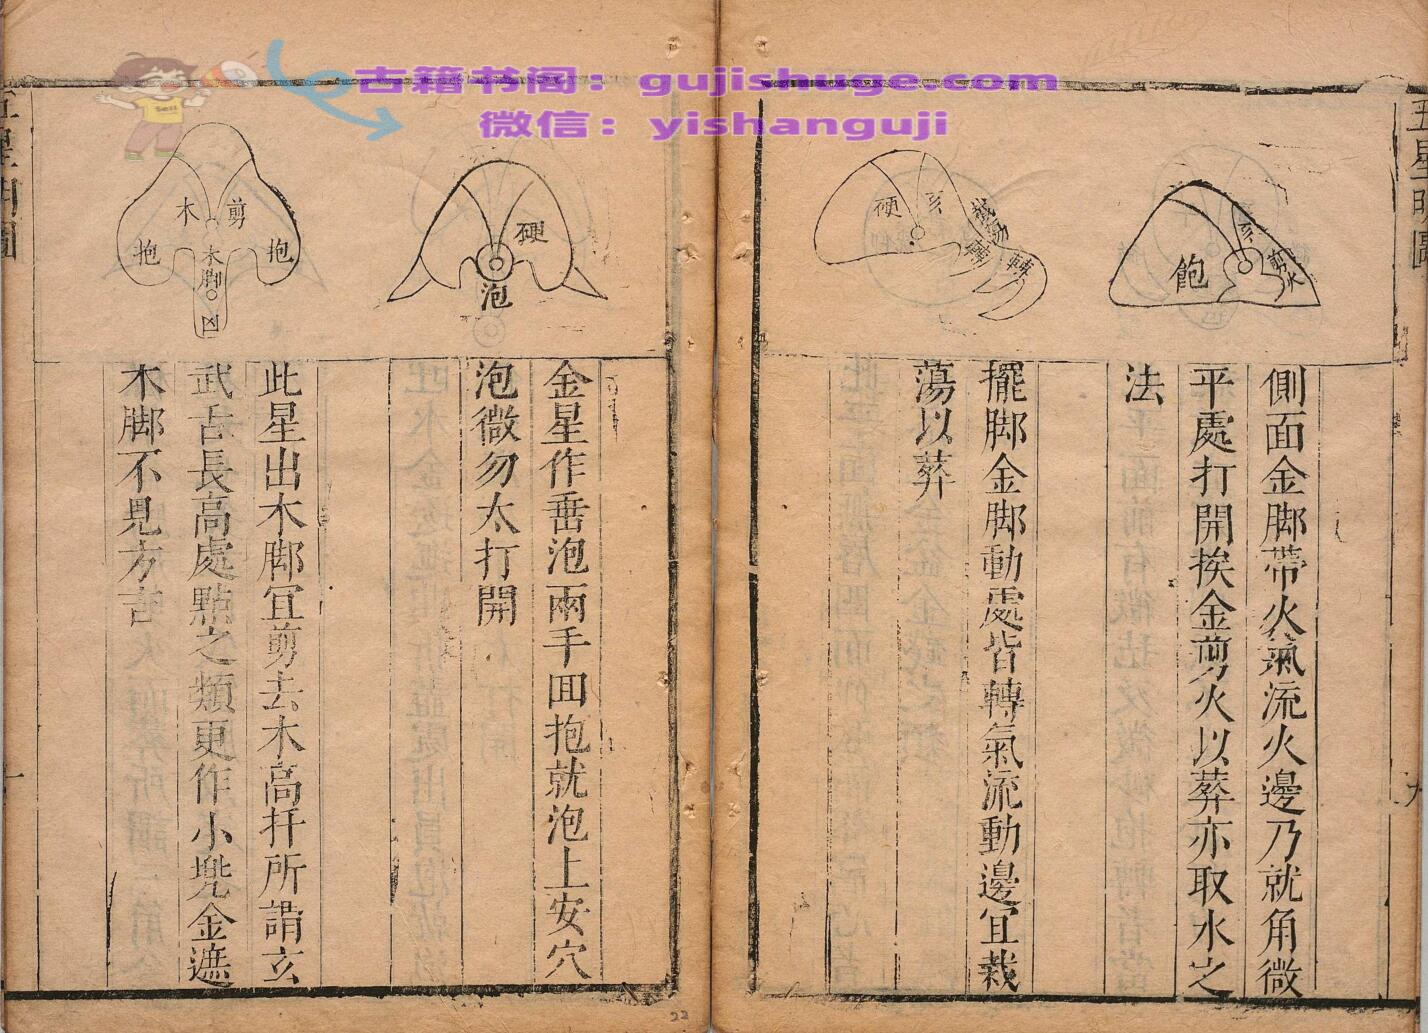 古籍书阁：gujishuge.com
微信：yishanguji
五星明圖
飽
亥
剪水
側面金脚帶火氣流火邊乃就角微
平處打開挨金剪火以葬亦取水之
法
硬
亥
轉
擺脚金脚動處皆轉氣流動邊宜裁
蕩以葬
九
硬
泡
金星作垂泡兩手回抱就泡上安穴
泡微勿太打開
剪
木
抱
抱
木脚
凶
此星出木脚宜剪去木高扦所謂玄
武舌長高處點之類更作小兠金遮
木脚不見方吉
22